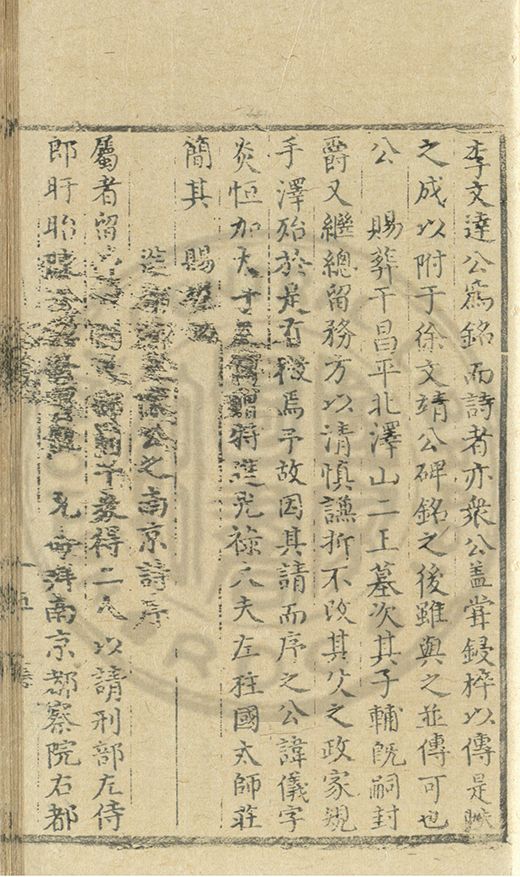 李文達公爲銘而詩者亦衆公盖嘗鋟梓以傳是
之成以附于徐文靖公碑銘之後雖與之並傳可也
公 賜葬干昌平北澤山二上墓次其子輔旣嗣封
爵又繼總留務方以清慎謙抑不改其父之政家規
手澤殆於是有徵焉予故因其請而序之公諱儀字
炎恒加太 特進光祿大夫左柱國太師莊
簡其 賜
公之南京詩序
屬者留 得二人以請刑部左侍
郎盱眙 拜南京都察院右都